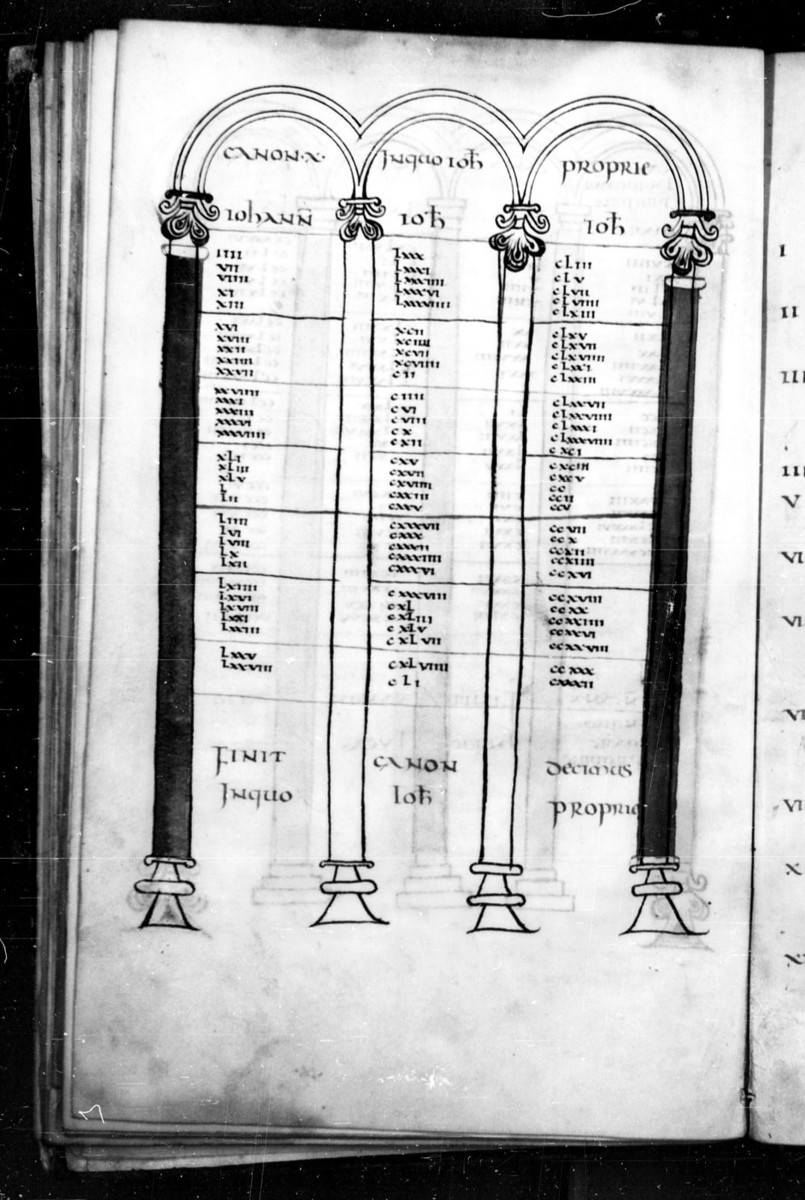 CANON·X· INQUO IOH̄ PROPRIE
IOHANN̄ IOH̄ IOH̄
IIII
VII
VIIII
XI
XIII
XVI
XVIII
XXII
XXIIII
XXVII
XXVIIII
XXXI
XXXIII
XXXVI
XXXVIIII
XLI
XLIII
XLV
L
LII
LIIII
LVI
LVIII
LX
LXII
LXIIII
LXVI
LXVIII
LXXI
LXXIII
LXXV
LXXVIII
LXXX
LXXXI
LXXXIIII
LXXXVI
LXXXVIIII
XCII
XCIIII
XCVII
XCVIIII
CII
CIIII
CVI
CVIII
CX
CXII
CXV
CXVII
CXVIIII
CXXIII
CXXV
CXXXVII
CXXX
CXXXII
CXXXIIII
CXXXVI
CXXXVIII
CXL
CXLIII
CXLV
CXLVII
CXLVIIII
CLI
CLIII
CLV
CLVII
CLVIIII
CLXIII
CLXV
CLXVII
CLXVIIII
CLXXI
CLXXIII
CLXXVII
CLXXVIIII
CLXXXI
CLXXXVIIII
CXCI
CXCIII
CXCV
CC
CCII
CCV
CCVII
CCX
CCXII
CCXIIII
CCXVI
CCXVIII
CCXX
CCXXIIII
CCXXVI
CCXXVIII
CCXXX
CXXXII
FINIT CANON DECIMUS
INQUO IOH̄ PROPRIE
I
II
III
V
VI